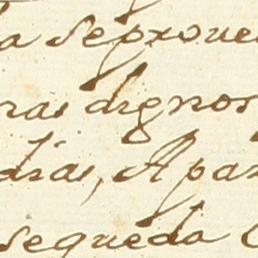 a se proue
ras dignos
dias, A par
se queda